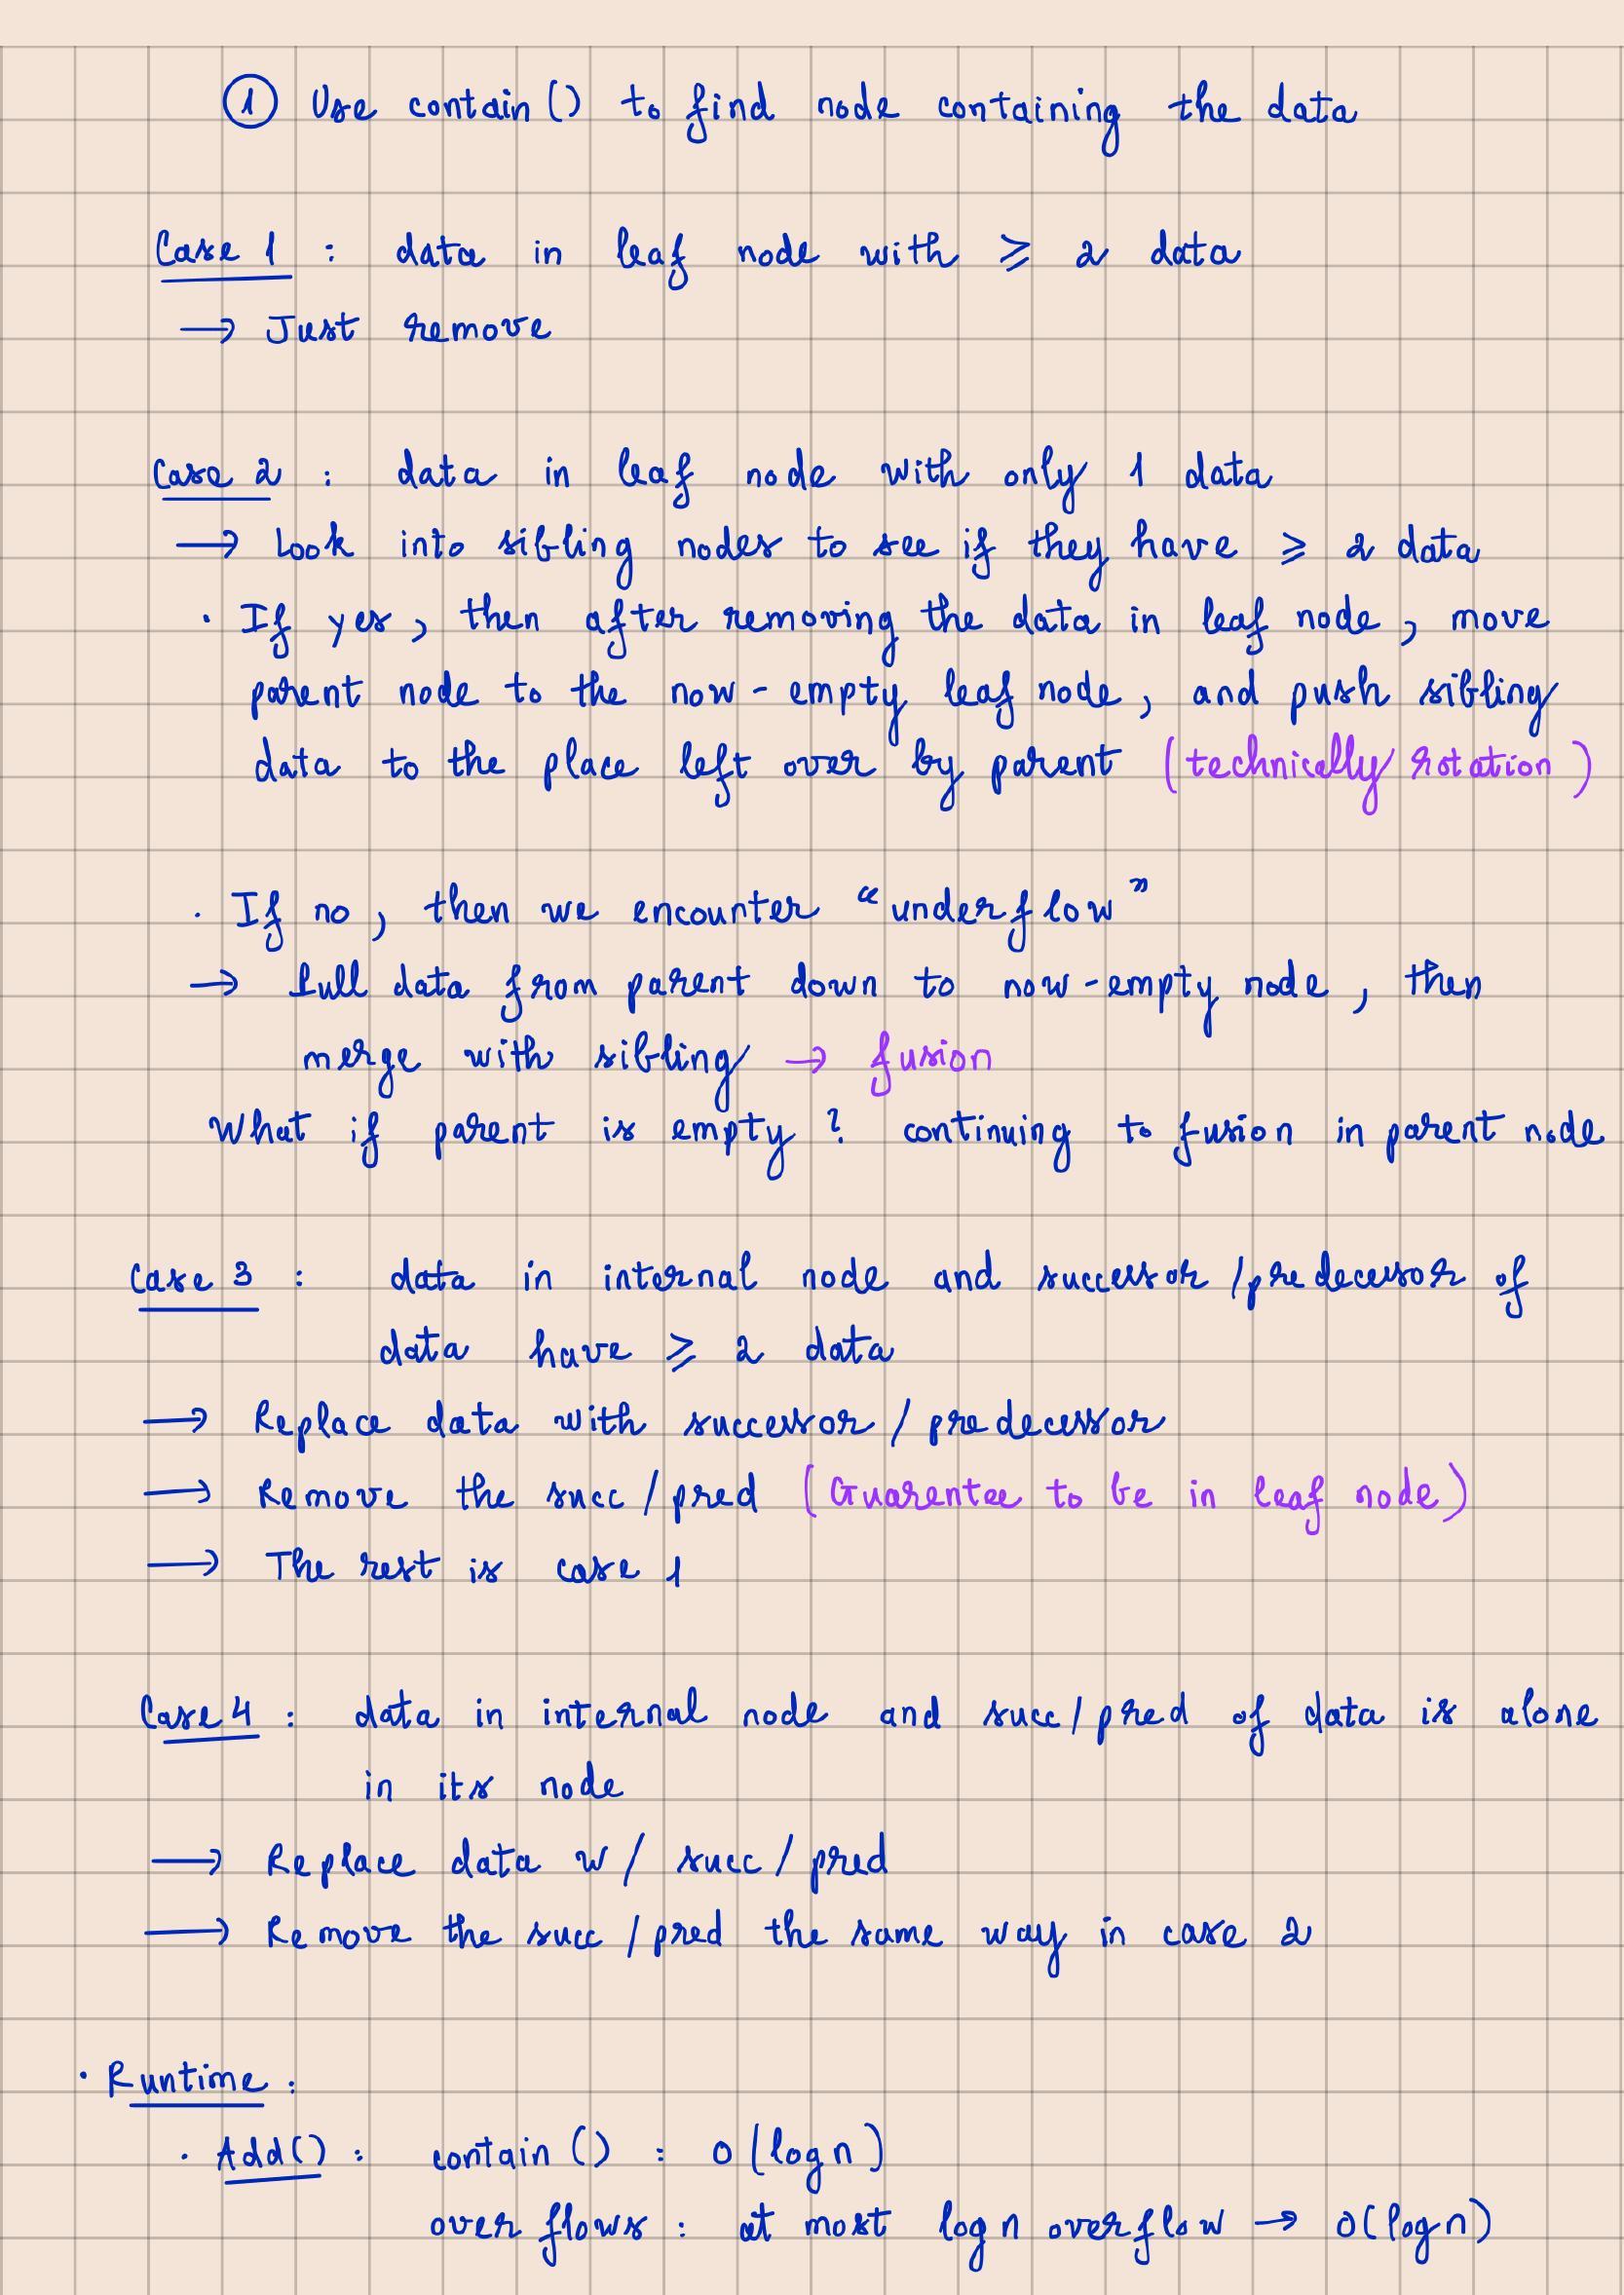 ① Use contain() to find node containing the data
Case 1 : data in leaf node with ⩾ 2 data
→ Just remove
Case 2 : data in leaf node with only 1 data
→ Look into sibling nodes to see if they have ⩾ 2 data
· If yes, then after removing the data in leaf node, move
parent node to the now-empty leaf node, and push sibling
data to the place left over by parent (technically rotation)
· If no, then we encounter “underflow”
→ Pull data from parent down to now-empty node, then
merge with sibling → fusion
What if parent is empty? continuing to fusion in parent node
Case 3 : data in internal node and successor/predecessor of
data have ⩾ 2 data
→ Replace data with successor/predecessor
→ Remove the succ/pred (Guarentee to be in leaf node)
→ The rest is case 1
Case 4 : data in internal node and succ/pred of data is alone
in its node
→ Replace data w/ succ/pred
→ Remove the succ/pred the same way in case 2
· Runtime :
· Add() : contain() : O(log n)
overflows : at most log n overflow → O(log n)